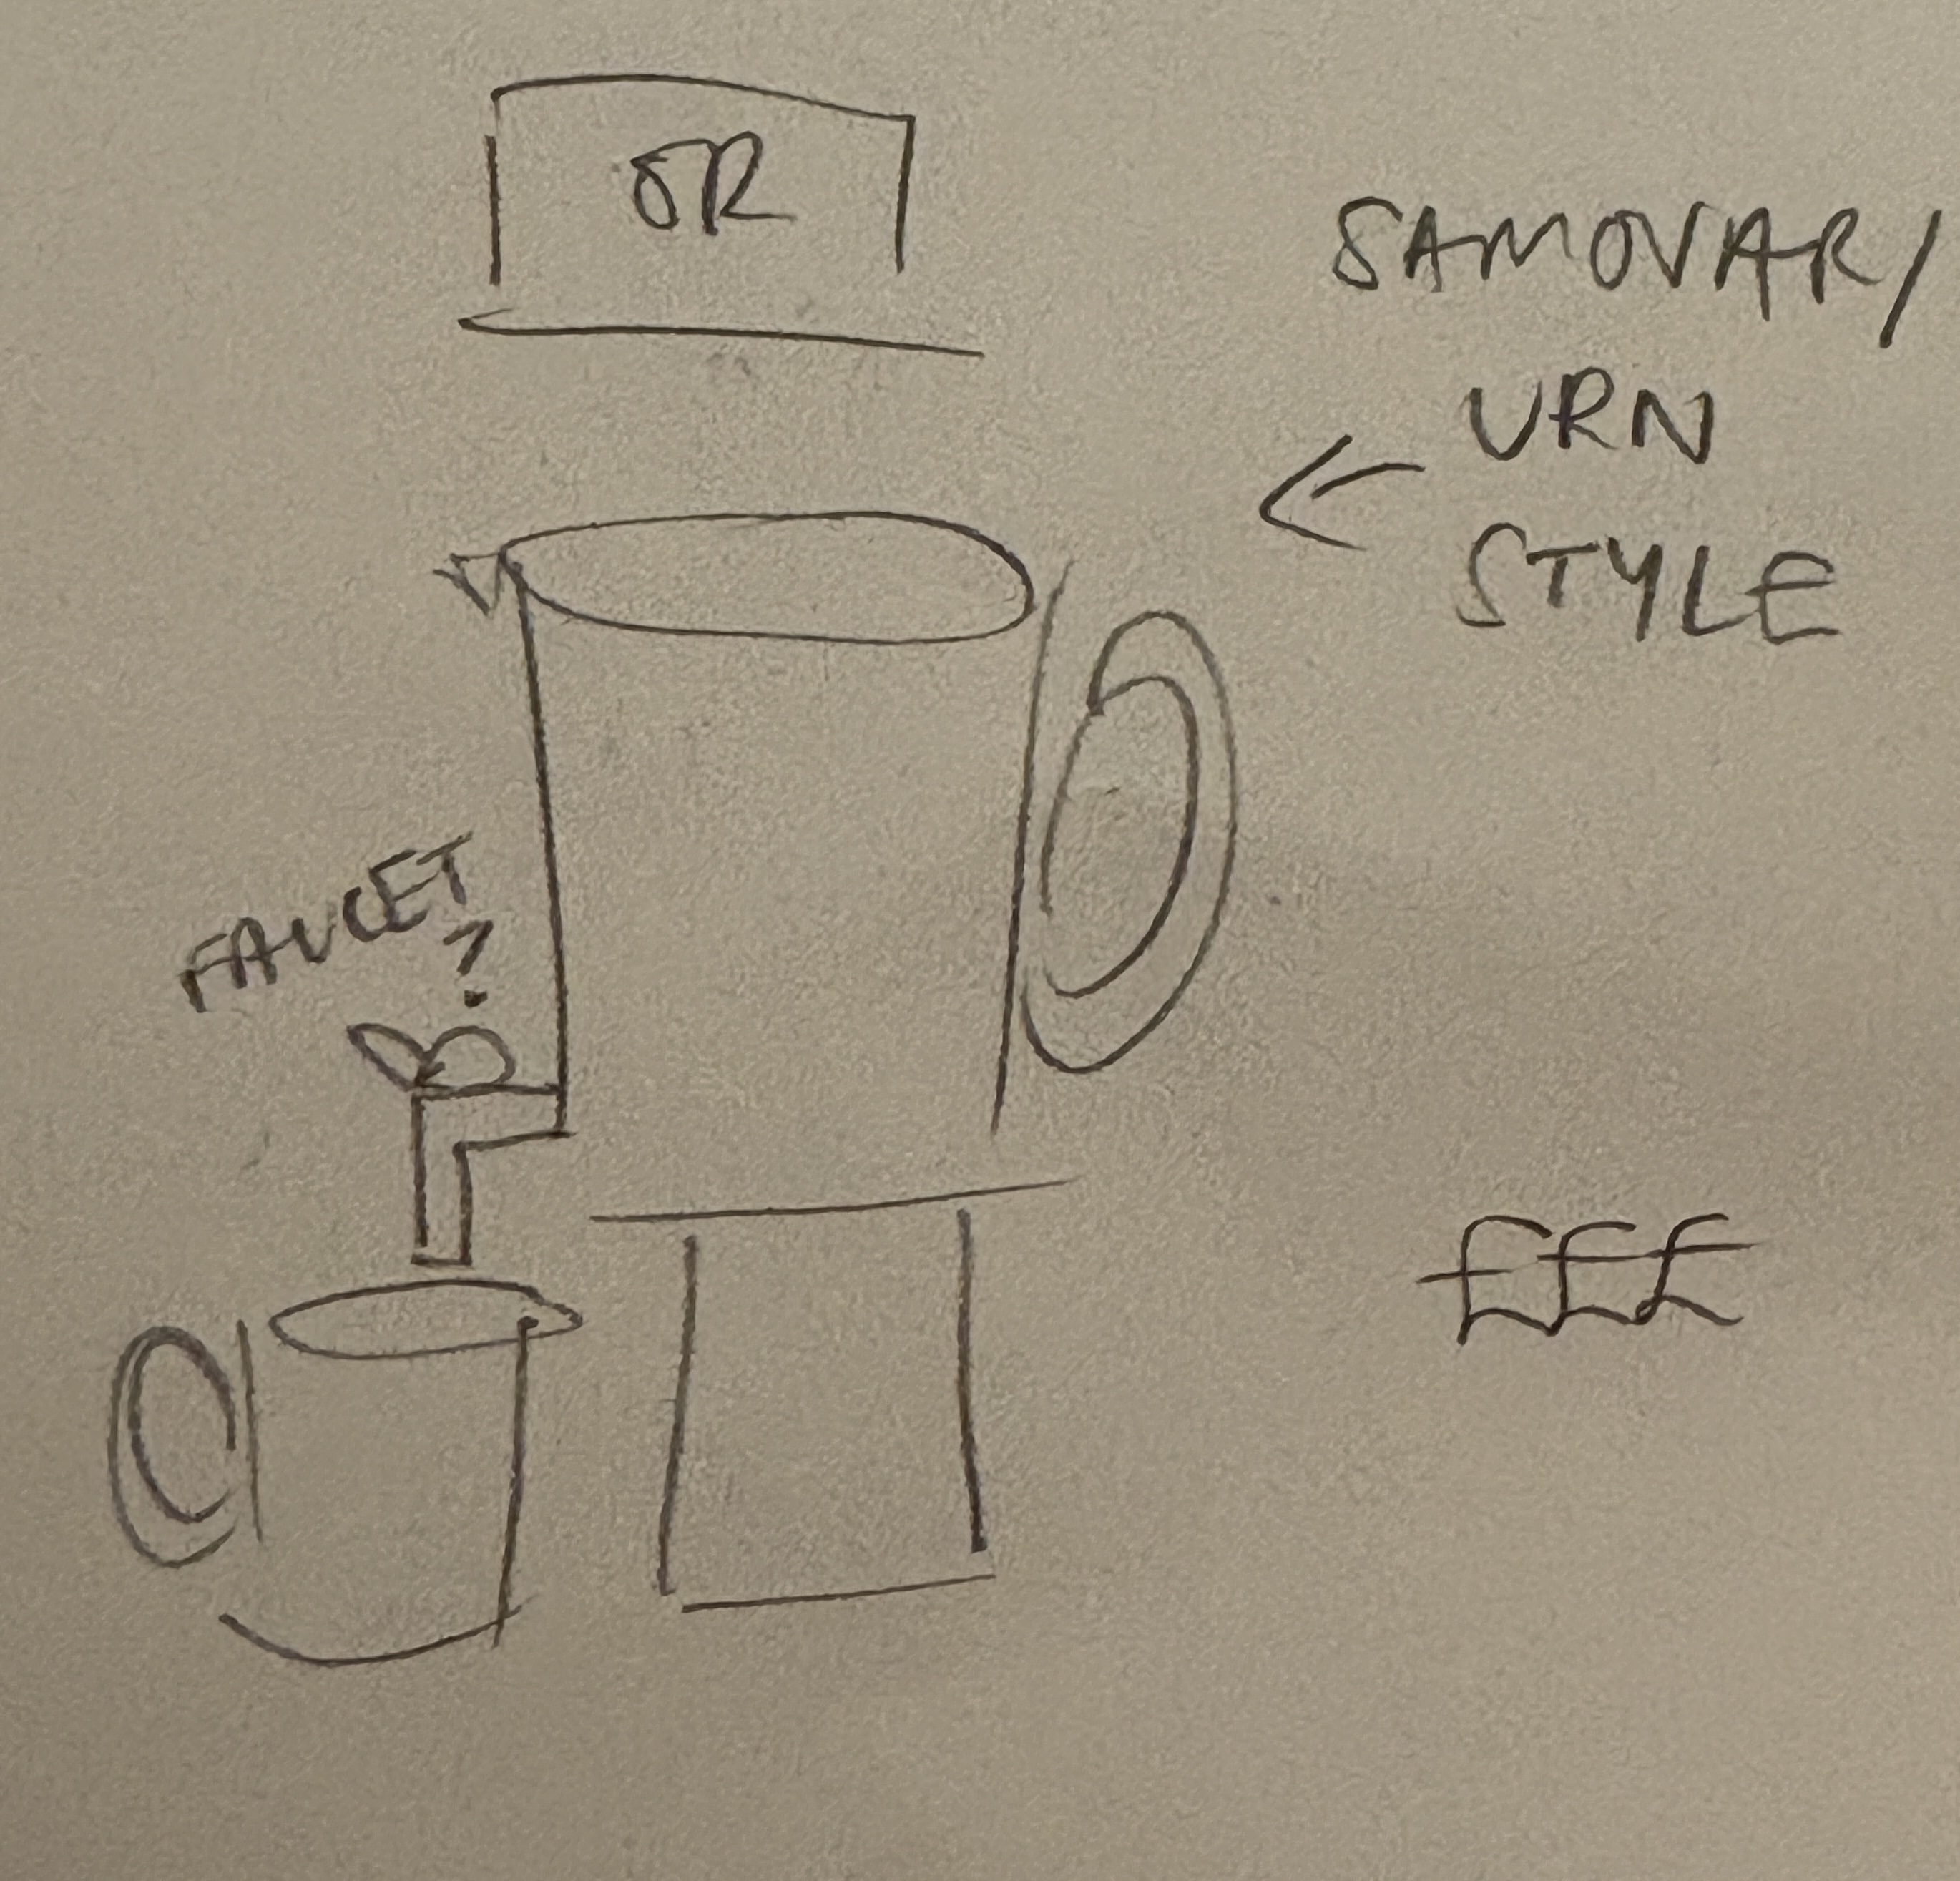 OR
SAMOVAR/
URN
STYLE
FAUCET
?
£££